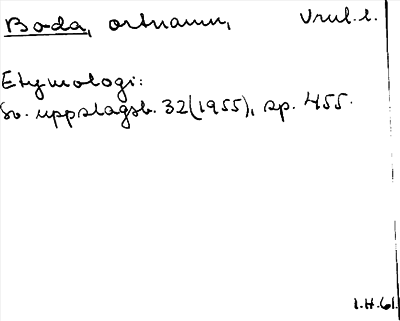 Boda, ortnamn, Vrul. l.
Etymologi:
Sv. uppslagsb. 32(1955), sp. 455.
I.H.61.